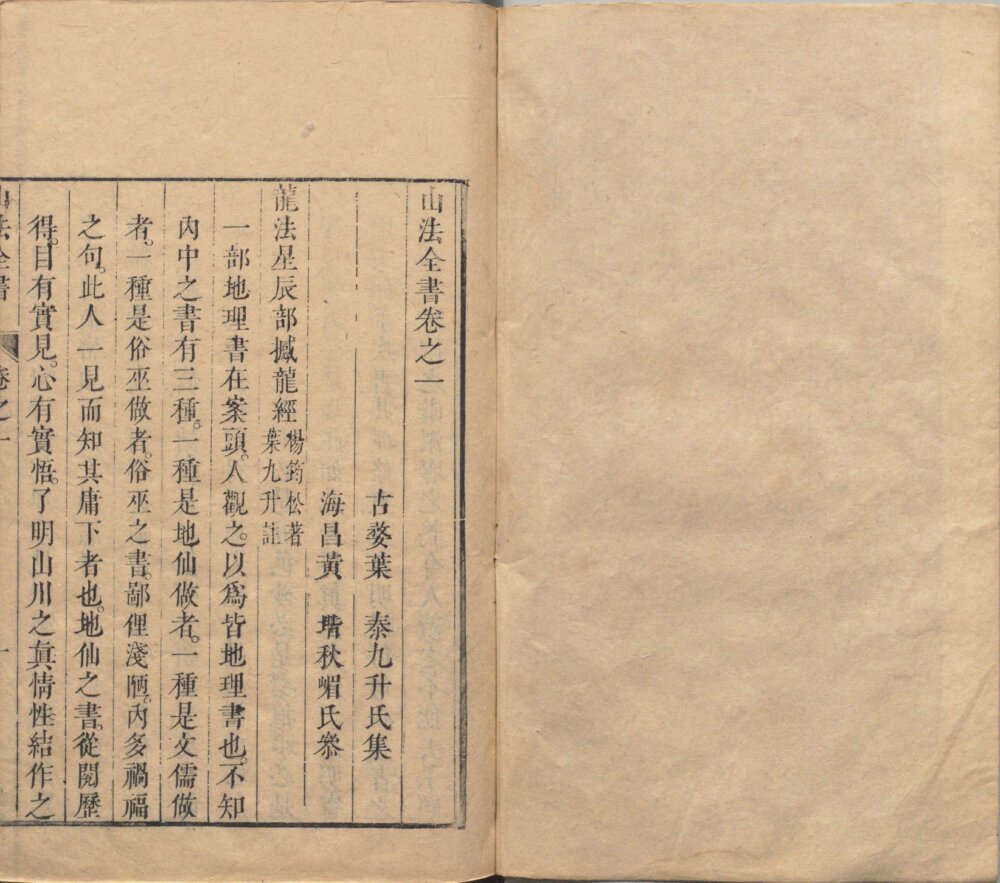 山法全書卷之一
古婺葉 泰九升氏集
海昌黃 堦秋嵋氏叅
龍法星辰部撼龍經 楊筠松著 葉九升註
一部地理書在案頭。人觀之。以爲皆地理書也。不知
內中之書有三種。一種是地仙做者。一種是文儒做
者。一種是俗巫做者。俗巫之書。鄙俚淺陋。內多禍福
之句。此人一見而知其庸下者也。地仙之書。從閱歷
得。目有實見。心有實悟。了明山川之眞情性結作之
山法全書 卷之一 一